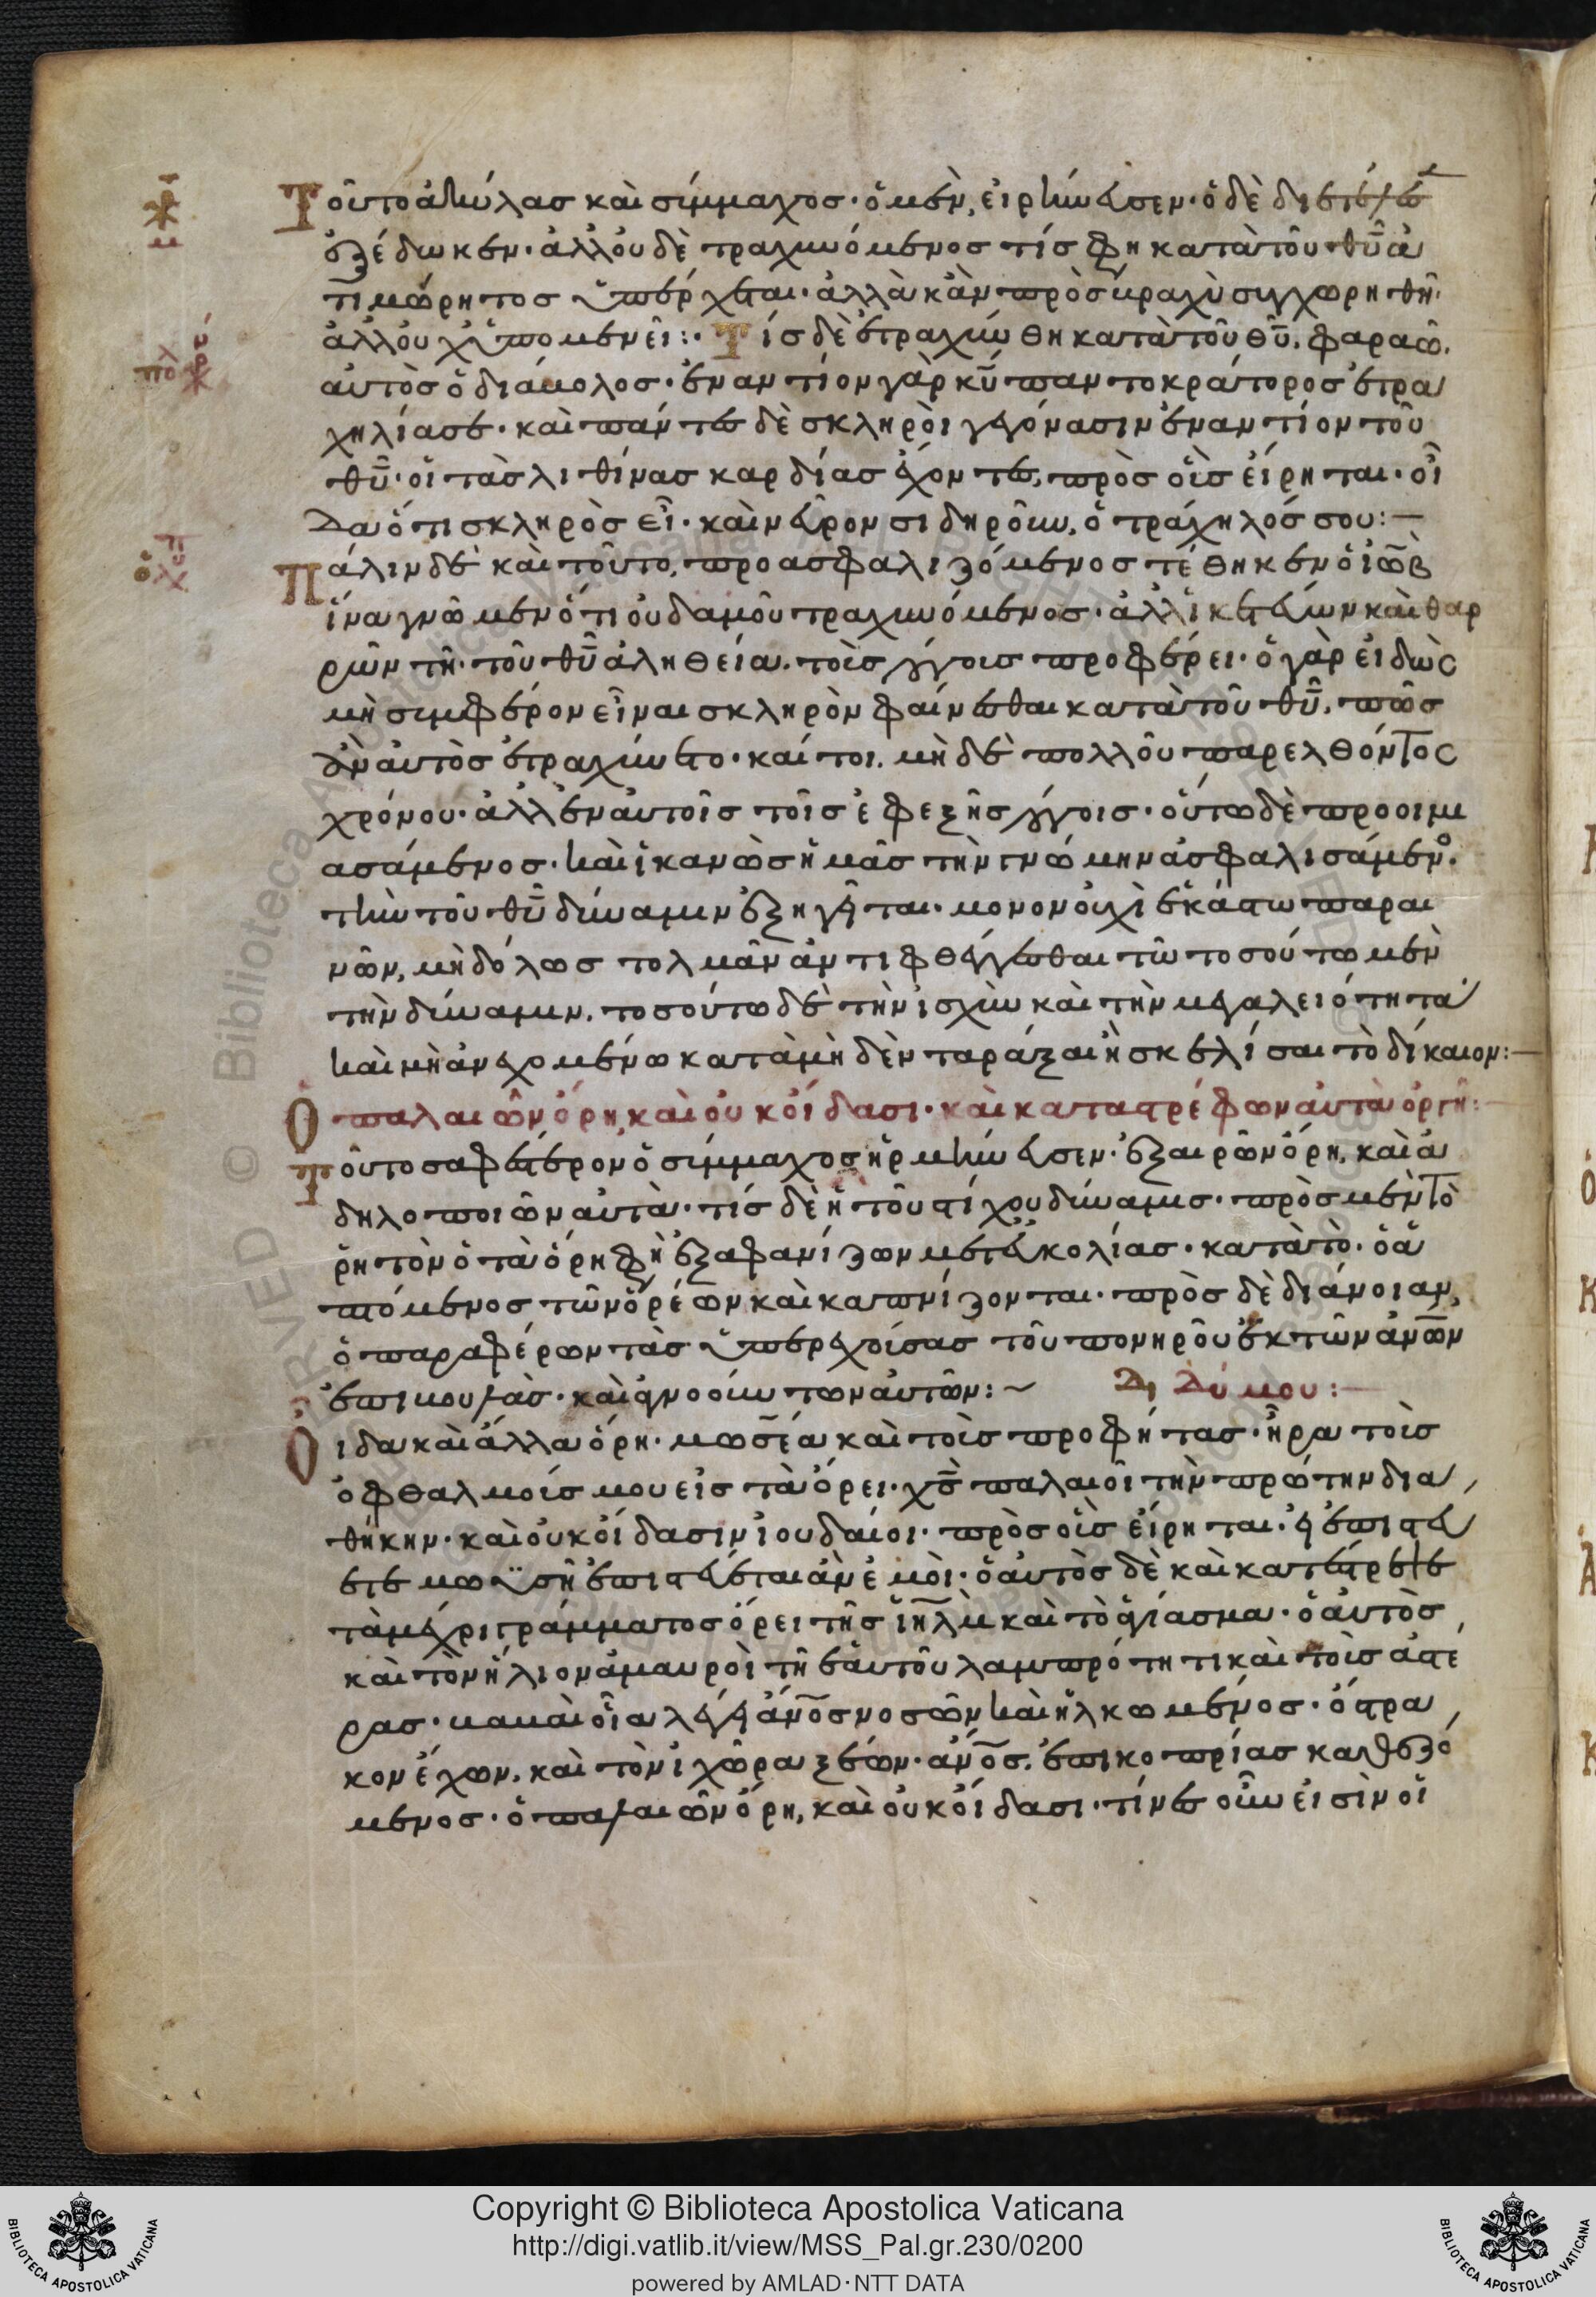 Τοῦτο ἀκύλας καὶ σύμμαχος· ὁ μὲν, εἰρήνευσεν· ὁ δὲ διετέλεσ
ἐξέδωκεν· ἀλλ οὐδὲ τραχυνόμενος τίς φη κατὰ τοῦ θῦ ἀ
τιμώρητος ὑπέρχεται· ἀλλὰ κἂν πρὸς βραχὺ συγχωρηθῆ·
ἀλλ οὐχ ὑπομενεῖ:· Τίς δὲ ἐτραχύνθη κατὰ τοῦ θῦ· φαραώ·
αὐτὸς ὁ διάβολος· ἐναντίον γὰρ κῦ παντοκράτορος ἐτρα
χηλίασε· καὶ πάντες δὲ σκληροὶ γεγόνασιν ἐναντίον τοῦ
θῦ· οἱ τὰς λιθίνας καρδίας ἔχοντες, πρὸς οὓς εἴρηται· οἶ
δα ὅτι σκληρὸς εἶ· καὶ νεῦρον σιδηροῦν, ὁ τράχηλός σου:—
Πάλιν δὲ καὶ τοῦτο, προασφαλιζόμενος τέθηκεν ὁ ἰὼβ
ἵνα γνῶμεν ὅτι οὐδαμοῦ τραχυνόμενος· ἀλλ ἱκετεύων καὶ θαρ
ρῶν τῆ τοῦ θῦ ἀληθεία· τοὺς λόγους προφέρει· ὁ γὰρ εἰδὼς
μὴ συμφέρον εἶναι σκληρὸν φαίνεσθαι κατὰ τοῦ θῦ, πῶς
ἂν αὐτὸς ἐτραχύνετο· καί τοι, μὴ δὲ πολλοῦ παρελθόντος
χρόνου· ἀλλ ἐν αὐτοῖς τοῖς ἐφεξῆς λόγοις· οὕτω δὲ προοιμι
ασάμενος· καὶ ἱκανῶς ἡμᾶς τὴν γνώμην ἀσφαλισάμενος·
τὴν τοῦ θῦ δύναμιν ἐξηγεῖται· μονονουχὶ ἑκάστω παραι
νῶν, μὴδόλως τολμᾶν ἀντιφθέγγεσθαι τῶ τοσούτω μὲν
τὴν δύναμιν, τοσούτω δὲ τὴν ἰσχὺν καὶ τὴν μεγαλειότητα
καὶ μὴ ἀνεχομένω κατὰ μὴδὲν ταράξαι ἢ σκελίσαι τὸ δίκαιον:—
Ὁ παλαιῶν ὄρη, καὶ οὐκ οἴδασι· καὶ καταστρέφων αὐτὰ ὀργῆ:
Τοῦτο σαφέστερον ὁ σύμμαχος ἡρμήνευσεν· ἐξαιρῶν ὄρη, καὶ ἀ
δηλοποιῶν αὐτὰ· τίς δὲ ἡ τοῦ στίχου δύναμις· πρὸς μὲν τὸ
ῥητὸν ὁ τὰ ὄρη φὴ ἐξαφανίζων μετ εὐκολίας· κατὰ τὸ· ὁ ἁ
πτόμενος τῶν ὀρέων καὶ καπνίζονται· πρὸς δὲ διάνοιαν,
ὁ παραφέρων τὰς ὑπερεχούσας τοῦ πονηροῦ ἐκ τῶν ἀνων
ἐπιβουλὰς· καὶ ἀγνοούντων αὐτῶν:~ Διδύμου:—
Οἶδα καὶ ἄλλα ὄρη· μωσέα καὶ τοὺς προφήτας· ἦρα τοὺς
ὀφθαλμούς μου εἰς τὰ ὄρει· χς παλαιοῖ τὴν πρώτην δια
θήκην· καὶ οὐκ οἴδασιν ἰουδαίοι· πρὸς οὓς εἴρηται· εἰ ἐπιστεύ
ετε μωϋσῆ ἐπιστεύεται ἂν ἐμοὶ· ὁ αὐτὸς δὲ καὶ κατέστρεψε
τὰ μέχρι γράμματος ὄρει τῆς ἱηλμ καὶ τὸ ἁγίασμα· ὁ αὐτὸς
καὶ τὸν ἥλιον ἀμαυροὶ τῆ ἑαυτοῦ λαμπρότητι καὶ τοὺς ἀστε
ρας· βαβαὶ οἷα λέγει ἀνος νοσῶν καὶ ἡλκωμένος· ὄστρα
κον ἔχων, καὶ τὸν ἰχῶρα ξέων· ἀνος, ἐπι κοπρίας καθεζό
μενος· ὁ παλαιῶν ὄρη, καὶ οὐκ οἴδασι· τίνες οὖν εἰσὶν οἱ
Copyright © Biblioteca Apostolica Vaticana
http://digi.vatlib.it/view/MSS_Pal.gr.230/0200
powered by AMLAD·NTT DATA
BIBLIOTECA APOSTOLICA VATICANA
BIBLIOTECA APOSTOLICA VATICANA